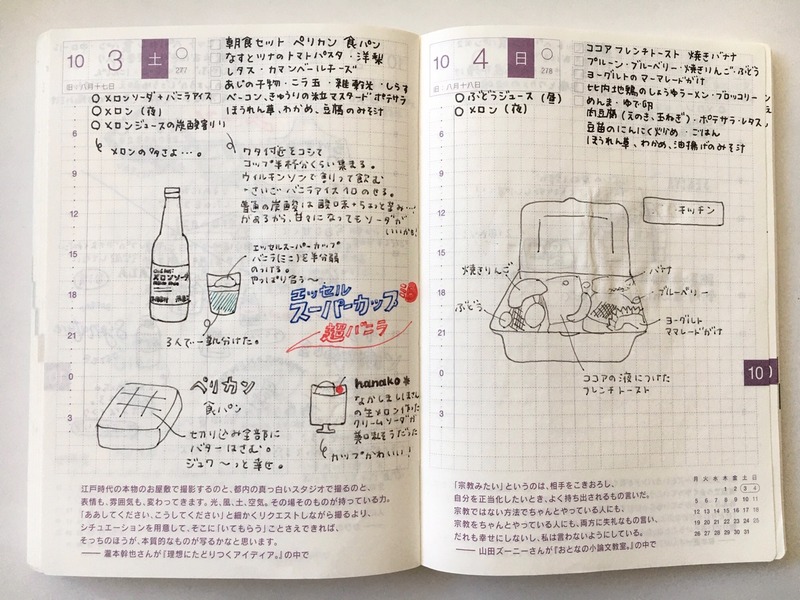 10 3 土
277
旧・八月十七日
○メロンソーダ+バニラアイス
○メロン(夜)
○メロンジュースの炭酸割り
朝食セット ペリカン 食パン
なすとツナのトマトパスタ・洋梨
レタス・カマンベールチーズ
あじの干物・ニラ玉・雑穀米・しらす
ベーコン、きゅうりの粒マスタードポテサラ
ほうれん草、わかめ、豆腐のみそ汁
メロンの多さよ…。
ワタ付近をコシて
コップ半杯分くらい集まる。
ウィルキンソンで割って飲む
+さいごバニラアイス10のせる。
普通の炭酸は
があるから、甘々になってもソーダが
いいかも!
メロンソーダ
エッセルスーパーカップ
バニラ(ミニ)を半分弱
のっける。
やっぱり合う〜
3人で一瓶分けた。
エッセル
スーパーカップ
超バニラ
ペリカン
食パン
切り込み全部に
バターはさむ。
ジュワ〜っと幸せ。
hanako
の生メロン
クリームソーダが
美味しそうだった
カップかわいい!
6
9
12
15
18
21
0
3
江戸時代の本物のお屋敷で撮影するのと、都内の真っ白いスタジオで撮るのと、
表情も、雰囲気も、変わってきます。光、風、土、空気。その場そのものが持っている力。
「ああしてください、こうしてください」と細かくリクエストしながら撮るより、
シチュエーションを用意して、そこに「いてもらう」ことさえできれば、
そっちのほうが、本質的なものが写るかなと思います。
——瀧本幹也さんが『理想にたどりつくアイディア。』の中で
10 4 日
278
旧・八月十八日
○ぶどうジュース(昼)
○メロン(夜)
ココアフレンチトースト 焼きバナナ
プルーン・ブルーベリー・焼きりんご・ぶどう
ヨーグルトのマーマレードがけ
比内地鶏のしょうゆラーメン・ブロッコリー
めんま・ゆで卵
肉豆腐(えのき、玉ねぎ)・ポテサラ・レタス
豆苗のにんにく炒め・ごはん
ほうれん草、わかめ、油揚げのみそ汁
キッチン
焼きりんご
ぶどう
バナナ
・ブルーベリー
ヨーグルト
ママレードがけ
ココアの液につけた
フレンチトースト
6
9
12
15
18
21
0
3
10
「宗教みたい」というのは、相手をこきおろし、
自分を正当化したいとき、よく持ち出されるもの言いだ。
宗教ではない方法でちゃんとやっている人にも、
宗教をちゃんとやっている人にも、両方に失礼なもの言い、
だれも幸せにしないし、私は言わないようにしている。
——山田ズーニーさんが『おとなの小論文教室。』の中で
月 火 水 木 金 土 日
1 2 3 4
5 6 7 8 9 10 11
12 13 14 15 16 17 18
19 20 21 22 23 24 25
26 27 28 29 30 31